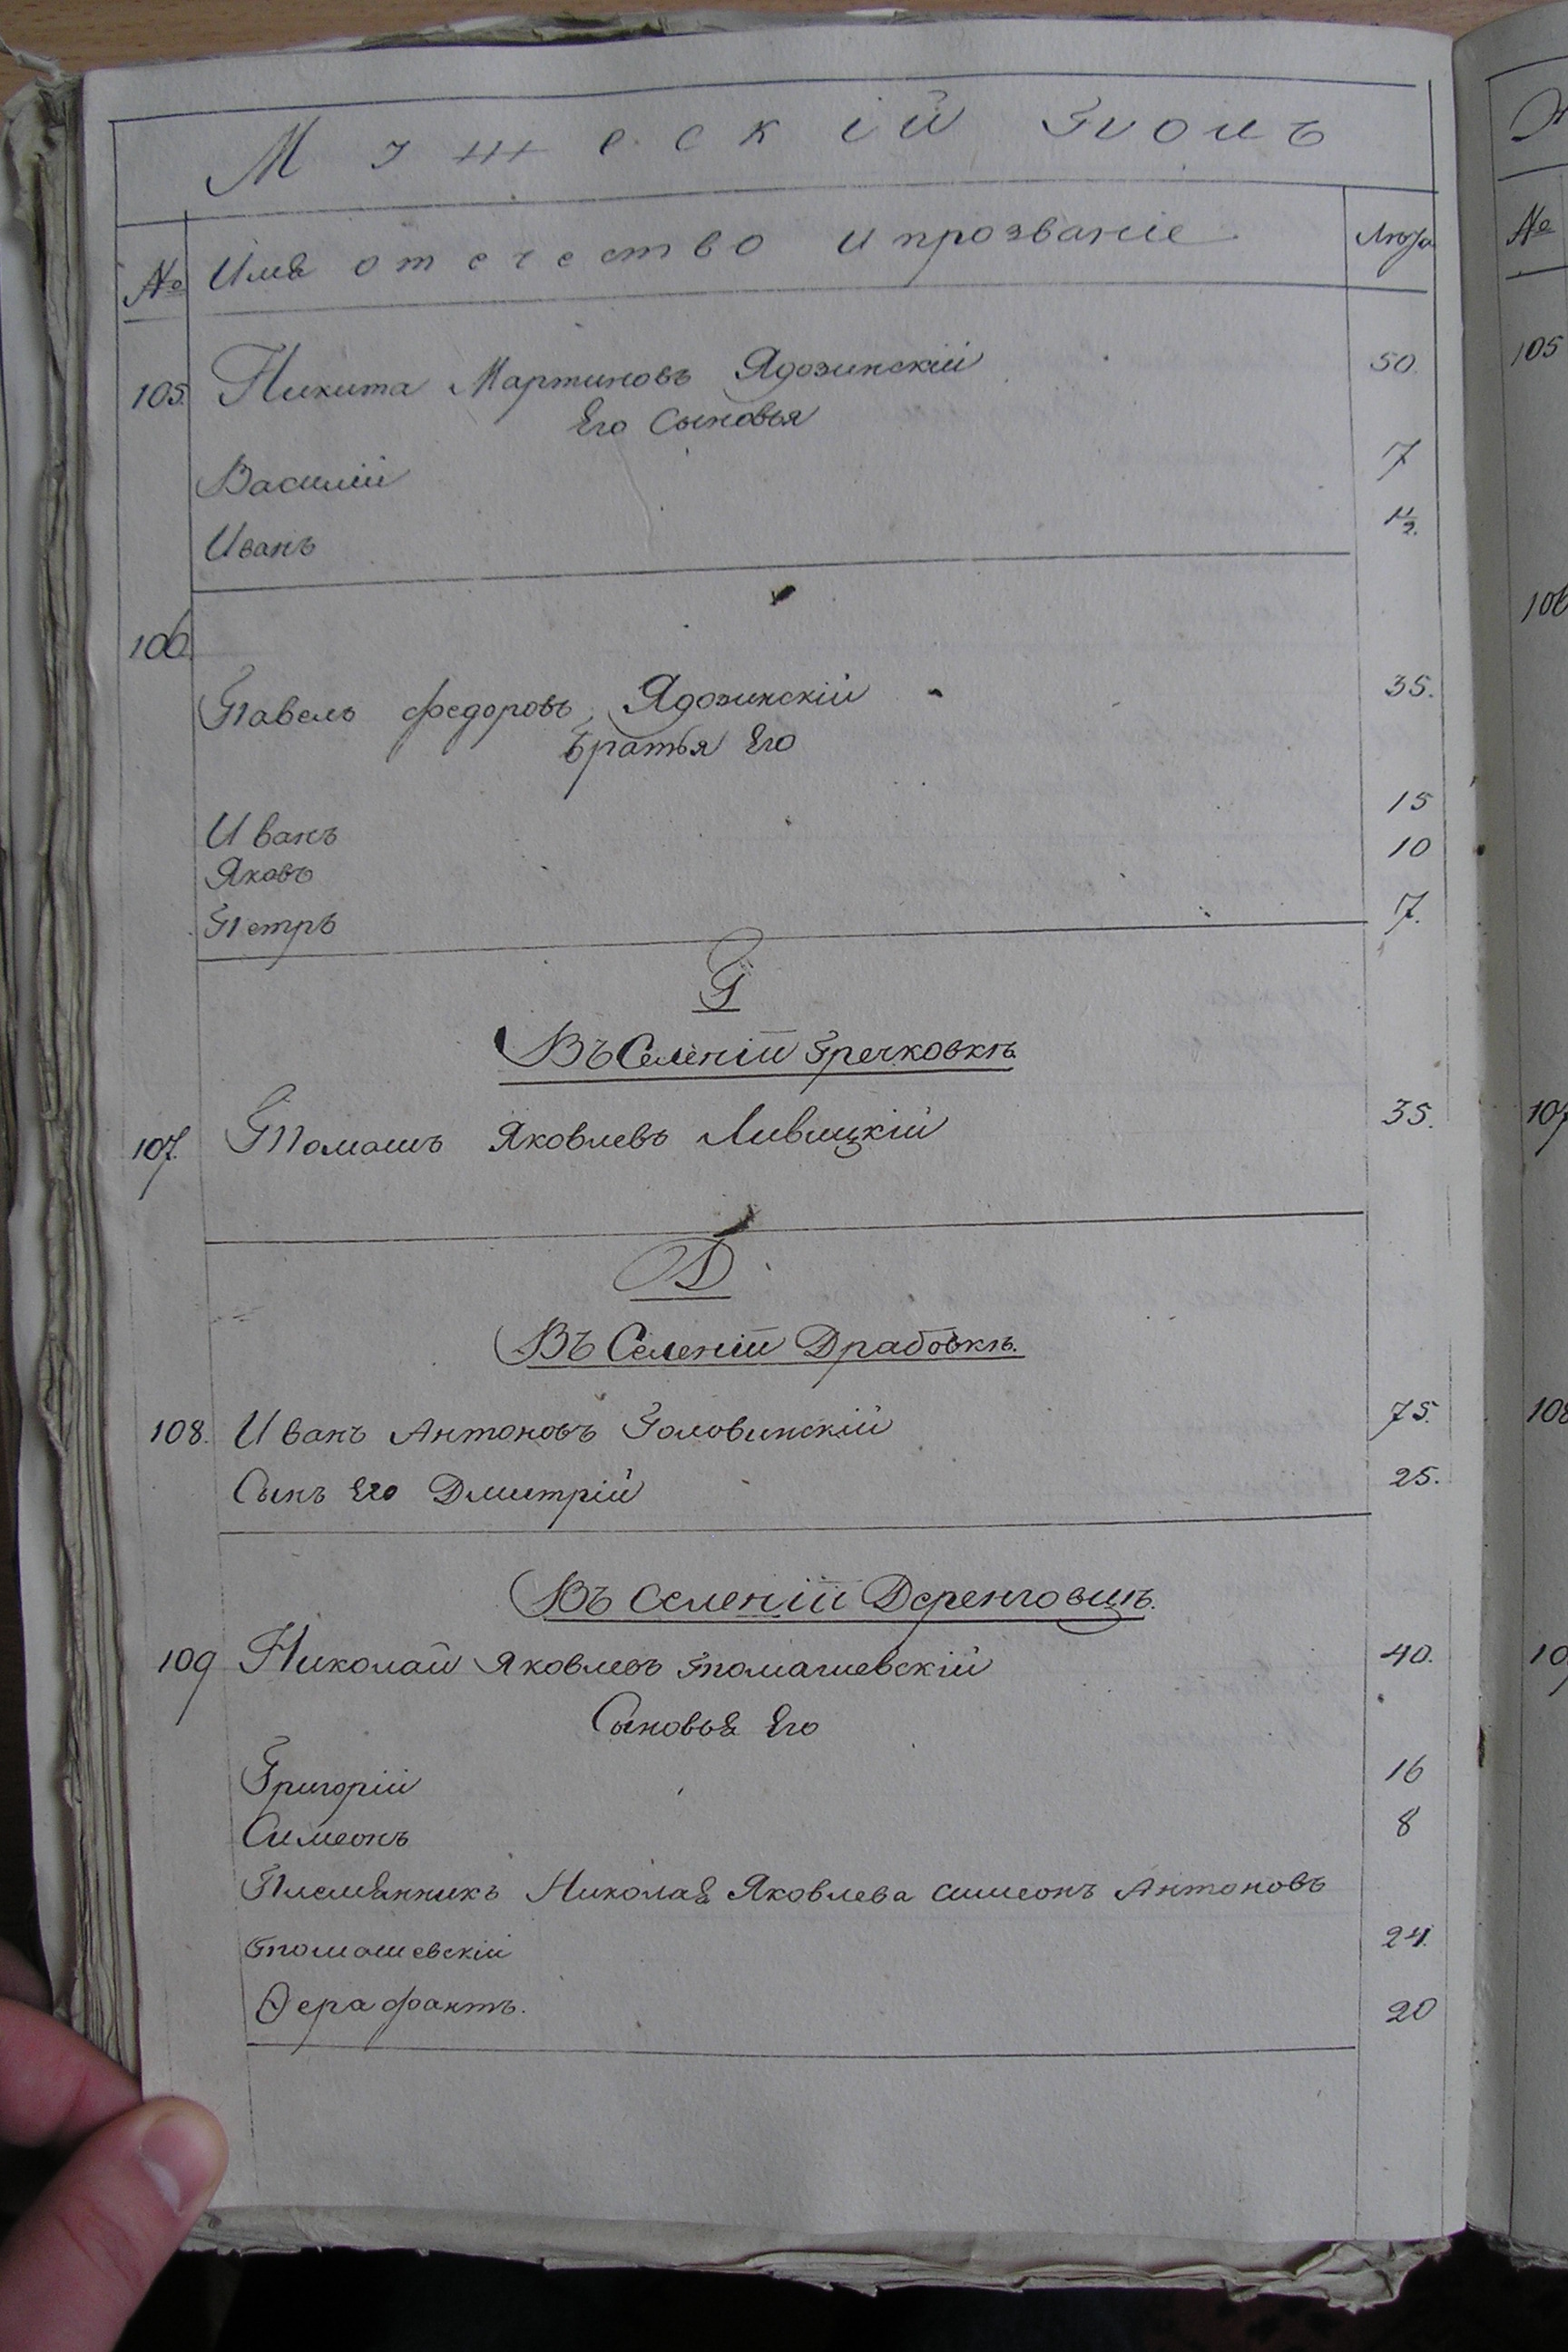 Мужескій полъ
№ Имя отечество и прозваніе Лѣта
105. Никита Мартиновъ Ядозинскій 50.
Его Сыновья
Василій 7
Иванъ 1½.
106.
Павелъ Федоровъ Ядозинскій 35.
Братья Его
Иванъ 15
Яковъ 10
Петръ 7.
Г
Въ Селеніи Гречковкѣ
107. Томашъ Яковлевъ Ливицкій 35.
Д
Въ Селеніи Драбовкѣ.
108. Иванъ Антоновъ Головинскій 75.
Сынъ Его Дмитрій 25.
Въ Селеніи Деренговцѣ.
109 Николай Яковлевъ Томашевскій 40.
Сыновья Его
Григорій 16
Симеонъ 8
Племянникъ Николая Яковлева Симеонъ Антоновъ
Томашевскій 24.
Ферафантъ. 20
№
105
106
107
108